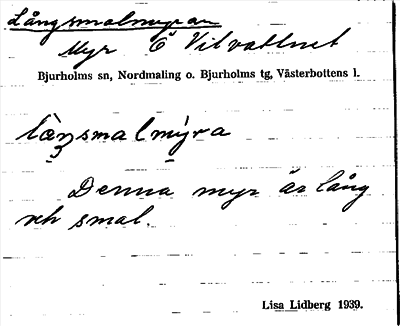 Långsmalmyran
Myr Ö Vitvattnet
Bjurholms sn, Nordmaling o. Bjurholms tg, Västerbottens l.
Denna myr är lång
och smal.
Lisa Lidberg 1939.